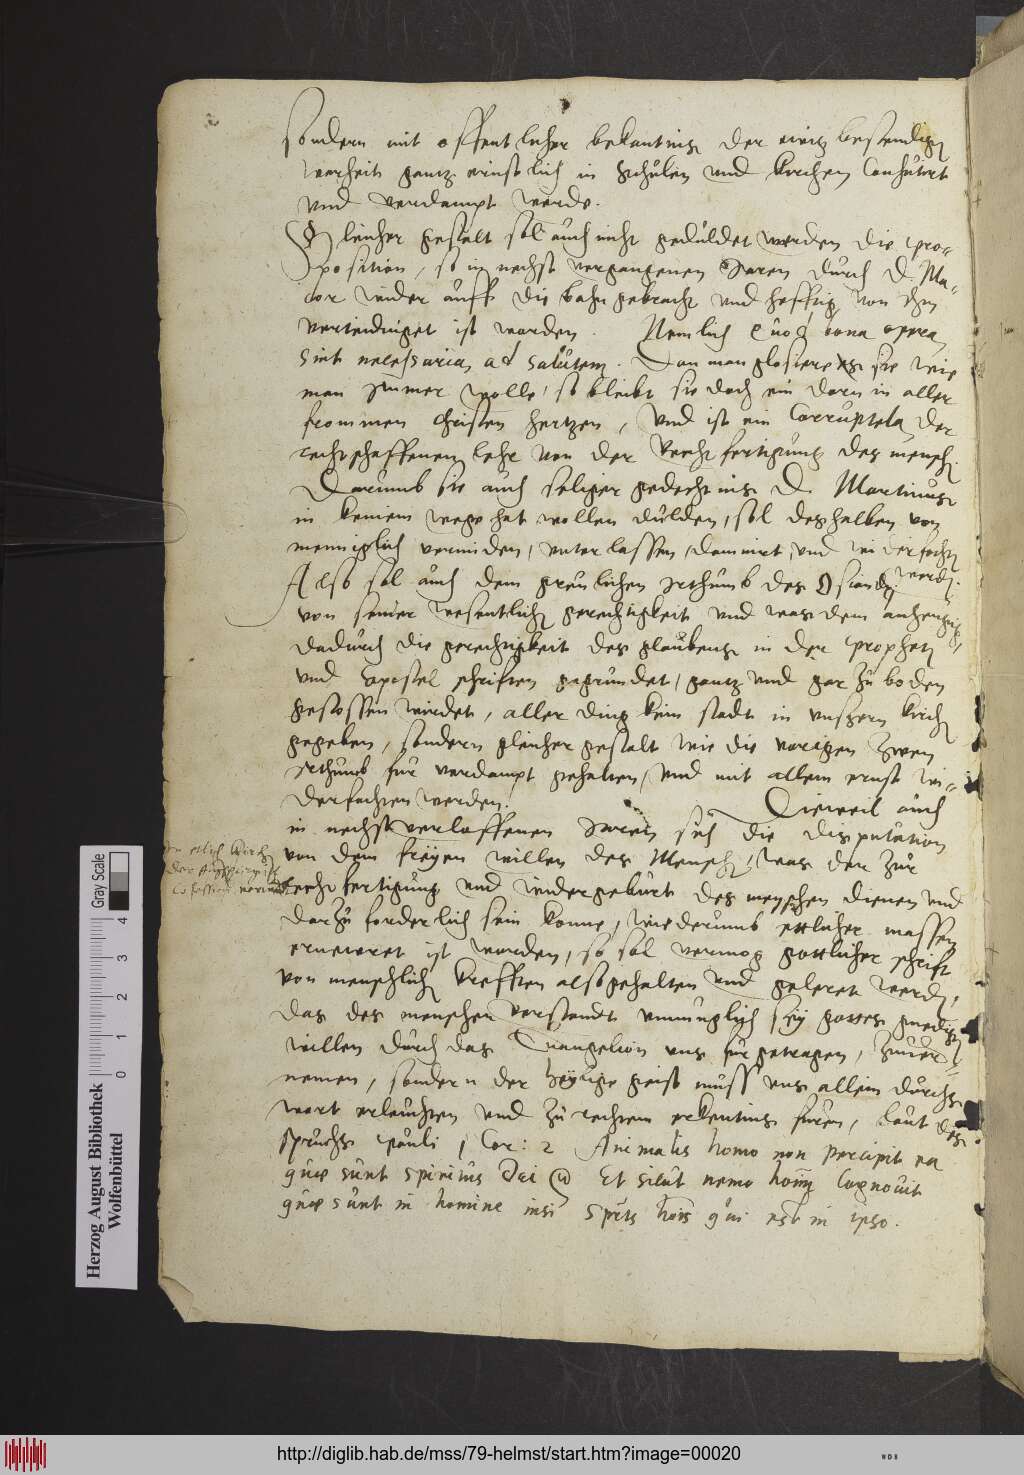 sondern mit offentlicher bekantnis der ewig bestendigen
warheit gantz ernstlich in schulen und kirchen Confutirt
und verdampt werde.
Gleicher gestalt sol auch nicht geduldet werden die pro-
position, so in nechst vergangenen Jaren durch D. Ma-
ior wider auff die bahn gebracht und hefftig von ihm
verteidinget ist worden. Nemlich Quod bona opera
sint necessaria ad salutem. Dan man glosiere sie wie
man ymmer wolle, so bleibt sie doch ein dorn in aller
frommen Christen hertzen, und ist ein Corruptela der
rechtschaffenen lehr von der Rechtfertigung des mensch.
Darumb sie auch seliger gedechtnis D. Martinus
in keinem wege hat wollen dulden, sol deshalben von
menniglich vermiden, unterlassen, damnirt, und widerfochten
werden.
Also sol auch dem greulichen Irthumb des Osiandri
von seiner wesentlichen gerechtigkeit und was dem anhengig,
dadurch die gerechtigkeit des glaubens in der propheten
und Apostel schriften gegrundet, gantz und gar zu boden
gestossen wirdet, aller ding kein stadt in unsern kirchen
gegeben, sondern gleicher gestalt wie die vorigen zwen
Irthumb fur verdampt gehalten, und mit allem ernst wi-
derfochten werden. Dieweil auch
in nechst verlaffenen Jaren sich die disputation
von dem freyen willen des Menschen, was der zur
Rechtfertigung und widergeburt des menschen dienen und
darzu forderlich sein konne, wiederumb ettlicher massen
erneweret ist worden, so sol vermog gottlicher schrift
von menschlichen krefften also gehalten und geleret werden,
das des menschen verstandt unmuglich sey gottes gnedigen
willen durch das Evangelion uns furgetragen, zuver-
nemen, sondern der heylige geist muss uns allein durchs
wort erleuchten und zu rechtem erkentnis furen, laut des
spruchs Pauli 1 Cor: 2 Animalis homo non percipit ea
quae sunt spiritus Dei Et sicut nemo hoim Cognovit
quae sunt in homine nisi spūs hois qui est in ipso.
In etlich Kirchen
der Augspurgisch
Cofession
Herzog August Bibliothek
Wolfenbüttel
Gray Scale
0 1 2 3 4
http://diglib.hab.de/mss/79-helmst/start.htm?image=00020
WDB